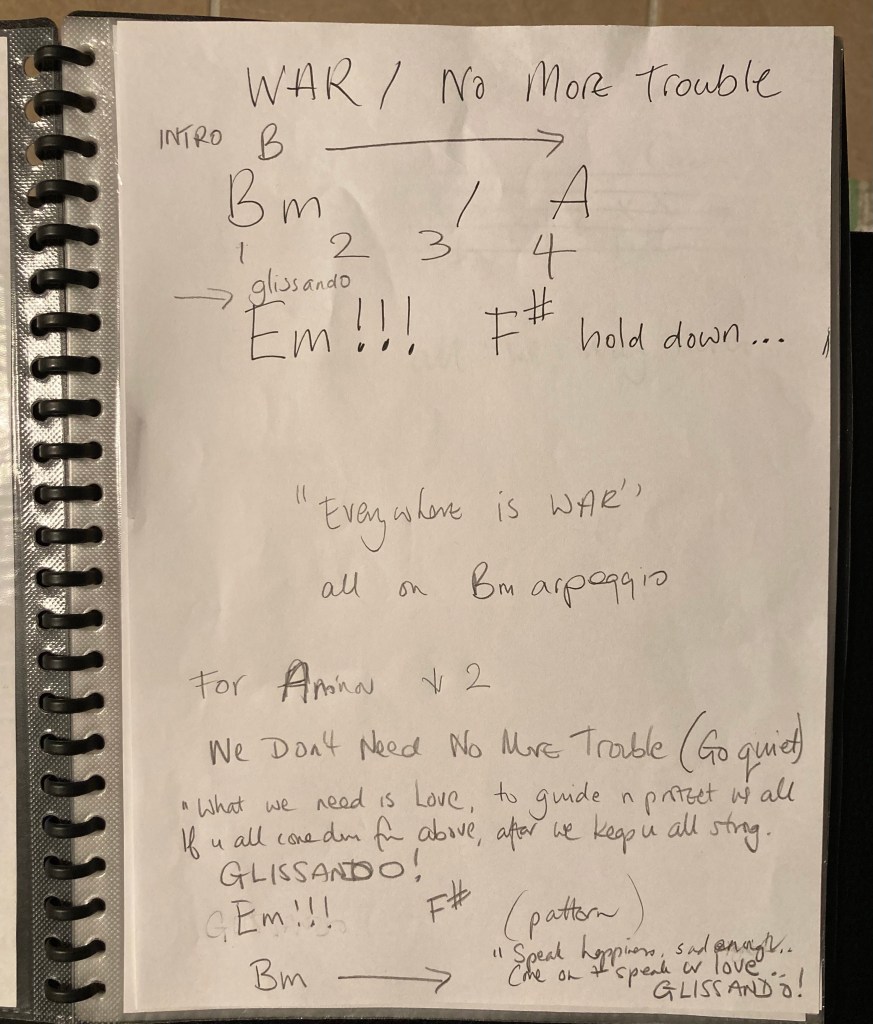 WAR / No More Trouble
INTRO B →
Bm / A
1 2 3 4
→ glissando
Em!!! F# hold down...
"Everywhere is WAR"
all on Bm arpeggio
For Aminor ↓ 2
We Don't Need No More Trouble (Go quiet)
"What we need is Love, to guide n protect us all
If u all come down from above, after we keep u all strong.
GLISSANDO!
Em!!! F# (pattern)
Bm → "Speak happiness, sad enough..
Come on + speak of love...
GLISSANDO!